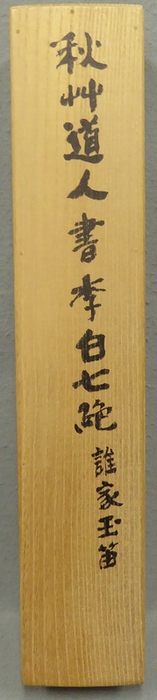 秋艸道人書李白七絶
誰家玉笛